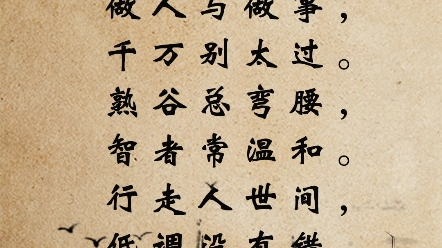 做人与做事，
千万别太过。
熟谷总弯腰，
智者常温和。
行走人世间，
低调没有错